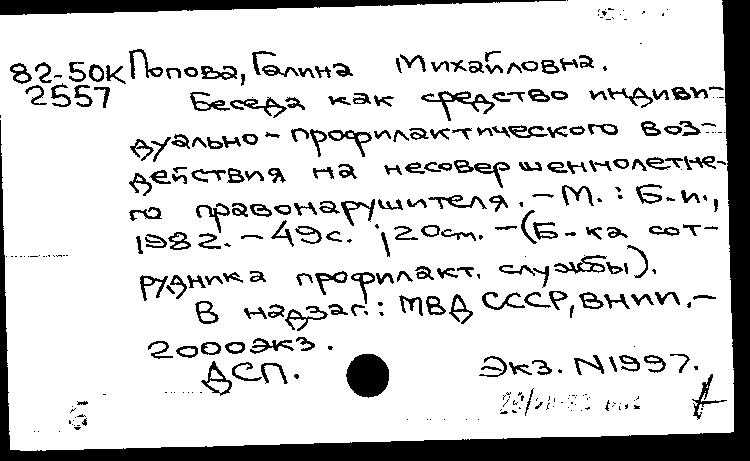 82-50К Попова, Галина Михайловна.
2557 Беседа как средство индиви-
дуально-профилактического воз-
действия на несовершеннолетне-
го правонарушителя. - М. : Б.и.,
1982. - 49с. ; 20см. - (Б-ка сот-
рудника профилакт. службы).
В надзаг.: МВД СССР, ВНИИ. -
2000экз.
ДСП. Экз. N1997.
б